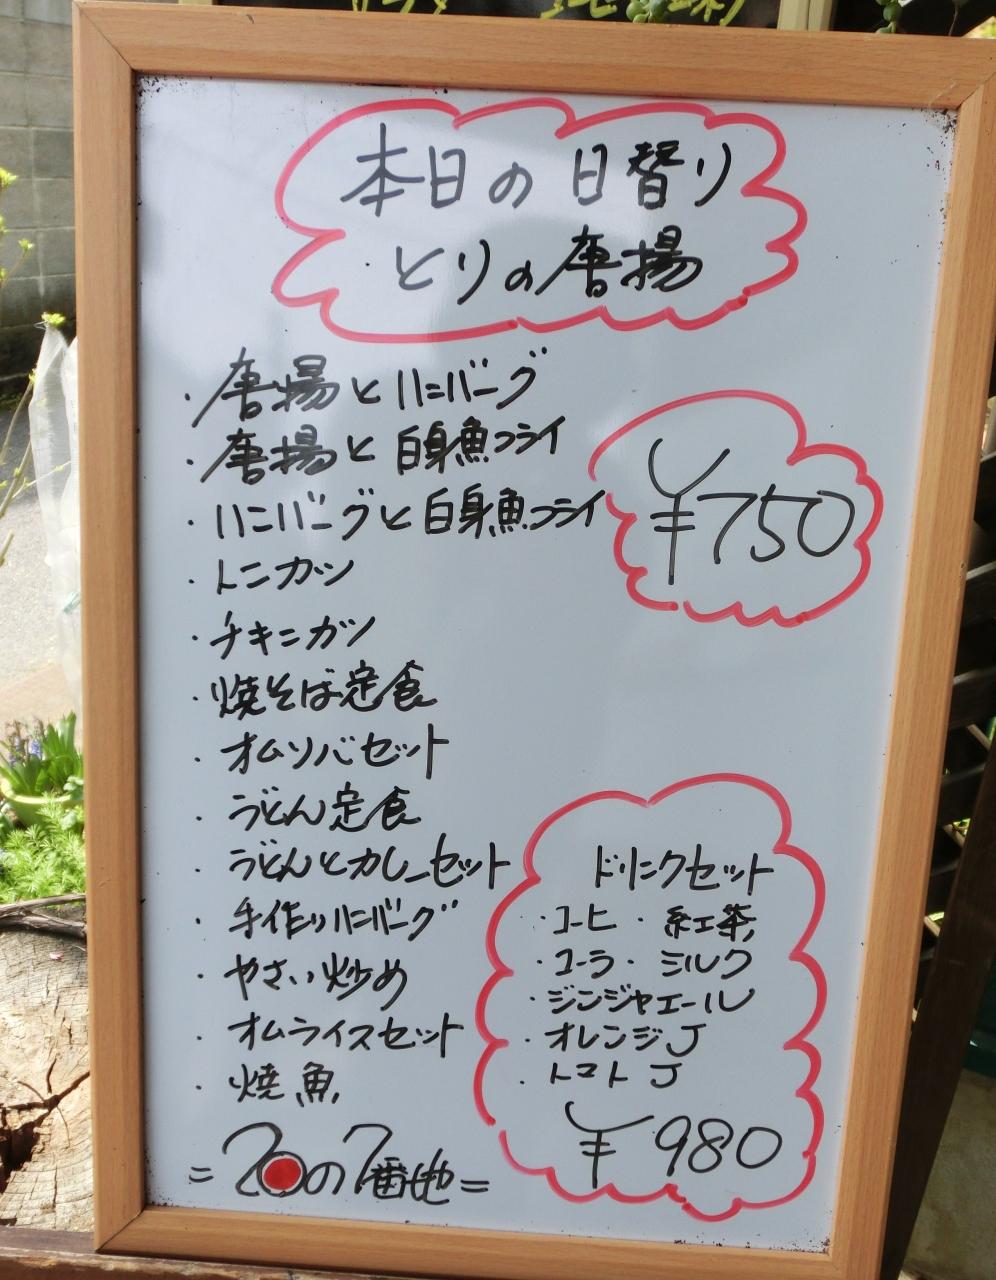 本日の日替り
とりの唐揚
・唐揚とハンバーグ
・唐揚と白身魚フライ
・ハンバーグと白身魚フライ
¥750
・トンカツ
・チキンカツ
・焼そば定食
・オムソバセット
・うどん定食
・うどんとカレーセット
・手作りハンバーグ
・やさい炒め
・オムライスセット
・焼魚
ドリンクセット
・コーヒ・紅茶
・コーラ・ミルク
・ジンジャエール
・オレンジJ
・トマトJ
¥980
=20の7番地=